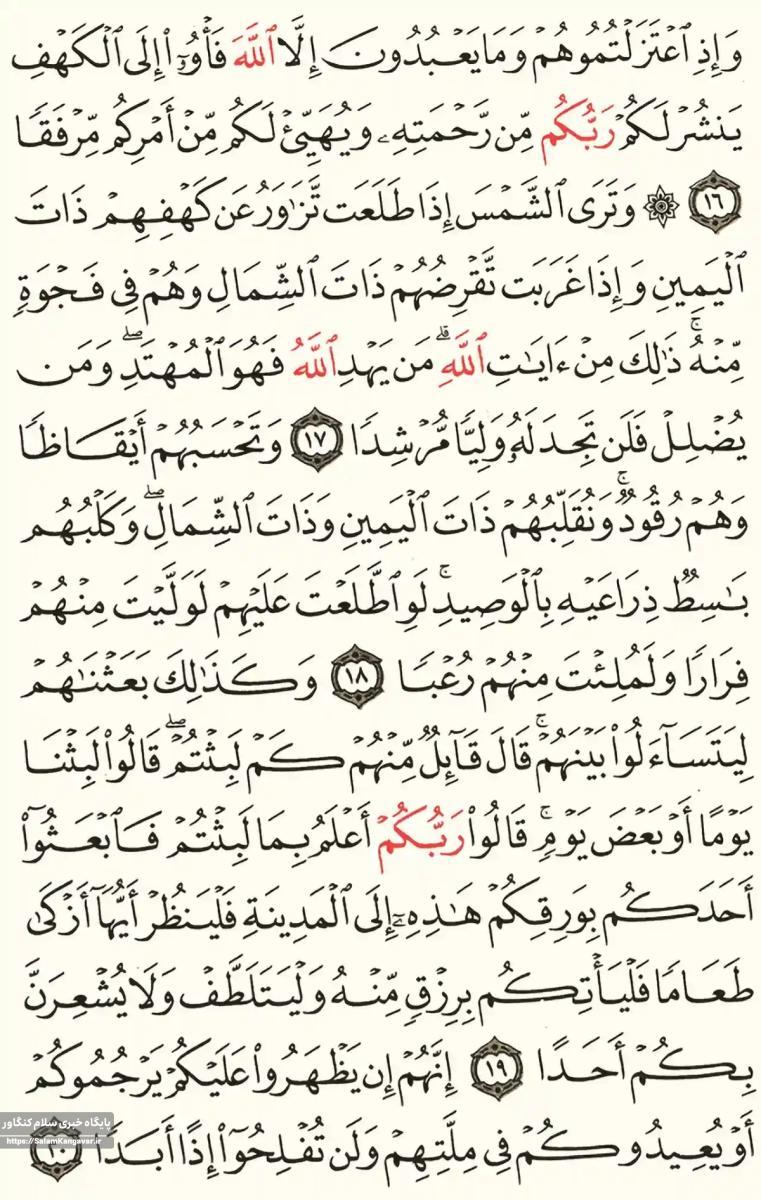 وَإِذِ ٱعْتَزَلْتُمُوهُمْ وَمَا يَعْبُدُونَ إِلَّا ٱللَّهَ فَأْوُۥٓا۟ إِلَى ٱلْكَهْفِ
يَنشُرْ لَكُمْ رَبُّكُم مِّن رَّحْمَتِهِۦ وَيُهَيِّئْ لَكُم مِّنْ أَمْرِكُم مِّرْفَقًا
١٦ ۞ وَتَرَى ٱلشَّمْسَ إِذَا طَلَعَت تَّزَٰوَرُ عَن كَهْفِهِمْ ذَاتَ
ٱلْيَمِينِ وَإِذَا غَرَبَت تَّقْرِضُهُمْ ذَاتَ ٱلشِّمَالِ وَهُمْ فِى فَجْوَةٍ
مِّنْهُ ۚ ذَٰلِكَ مِنْ ءَايَٰتِ ٱللَّهِ ۗ مَن يَهْدِ ٱللَّهُ فَهُوَ ٱلْمُهْتَدِ ۖ وَمَن
يُضْلِلْ فَلَن تَجِدَ لَهُۥ وَلِيًّا مُّرْشِدًا ١٧ وَتَحْسَبُهُمْ أَيْقَاظًا
وَهُمْ رُقُودٌ ۚ وَنُقَلِّبُهُمْ ذَاتَ ٱلْيَمِينِ وَذَاتَ ٱلشِّمَالِ ۖ وَكَلْبُهُم
بَٰسِطٌ ذِرَاعَيْهِ بِٱلْوَصِيدِ ۚ لَوِ ٱطَّلَعْتَ عَلَيْهِمْ لَوَلَّيْتَ مِنْهُمْ
فِرَارًا وَلَمُلِئْتَ مِنْهُمْ رُعْبًا ١٨ وَكَذَٰلِكَ بَعَثْنَٰهُمْ
لِيَتَسَآءَلُوا۟ بَيْنَهُمْ ۚ قَالَ قَآئِلٌ مِّنْهُمْ كَمْ لَبِثْتُمْ ۖ قَالُوا۟ لَبِثْنَا
يَوْمًا أَوْ بَعْضَ يَوْمٍ ۚ قَالُوا۟ رَبُّكُمْ أَعْلَمُ بِمَا لَبِثْتُمْ فَٱبْعَثُوٓا۟
أَحَدَكُم بِوَرِقِكُمْ هَٰذِهِۦٓ إِلَى ٱلْمَدِينَةِ فَلْيَنظُرْ أَيُّهَآ أَزْكَىٰ
طَعَامًا فَلْيَأْتِكُم بِرِزْقٍ مِّنْهُ وَلْيَتَلَطَّفْ وَلَا يُشْعِرَنَّ
بِكُمْ أَحَدًا ١٩ إِنَّهُمْ إِن يَظْهَرُوا۟ عَلَيْكُمْ يَرْجُمُوكُمْ
أَوْ يُعِيدُوكُمْ فِى مِلَّتِهِمْ وَلَن تُفْلِحُوٓا۟ إِذًا أَبَدًا ٢٠
پایگاه خبری سلام کنگاور
https://SalamKangavar.ir